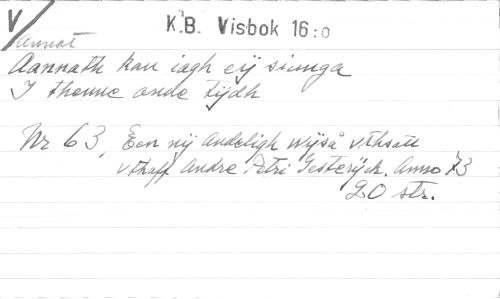 V/
Annat
K.B. Visbok 16:o
Aannath kan iagh eij siunga
I thenne onde tijdh
Nr 63, Een nij Andeligh wijså vthsatt
vthaff Andre Petri Gesterijck. Anno 73
20 str.